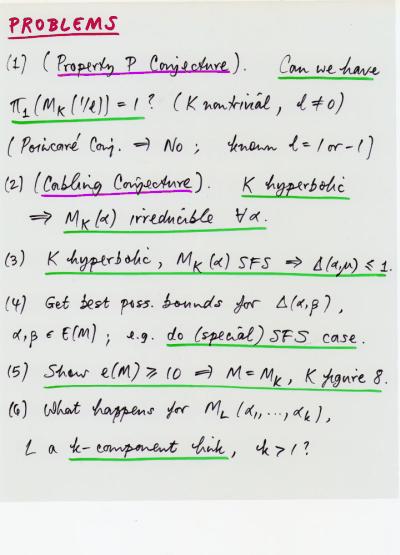 PROBLEMS
(1) (Property P Conjecture). Can we have
π₁(M_K(1/l)) = 1? (K nontrivial, l ≠ 0)
(Poincaré Conj. ⇒ No; known l = 1 or -1)
(2) (Cabling Conjecture). K hyperbolic
⇒ M_K(α) irreducible ∀α.
(3) K hyperbolic, M_K(α) SFS ⇒ Δ(α,μ) ≤ 1.
(4) Get best poss. bounds for Δ(α,β),
α,β ∈ E(M); e.g. do (special) SFS case.
(5) Show e(M) ≥ 10 ⇒ M = M_K, K figure 8.
(6) What happens for M_L(α₁,...,α_k),
L a k-component link, k > 1?